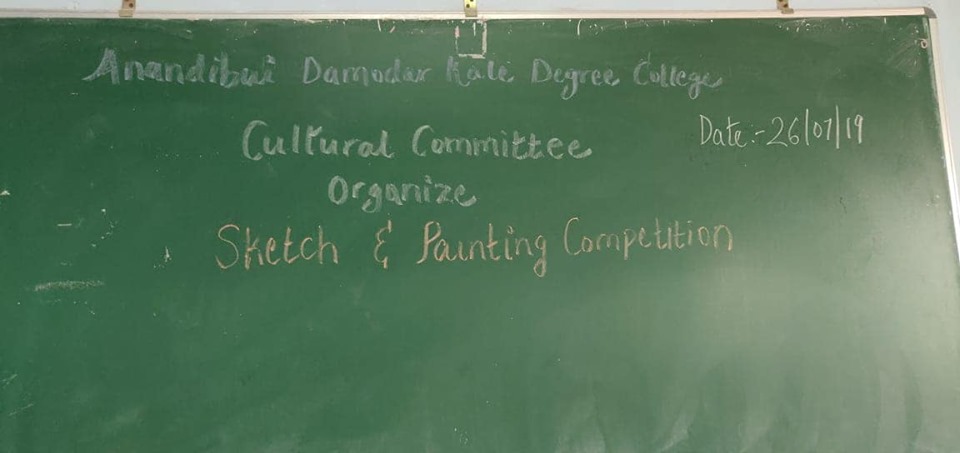 Anandibai Damodar Kale Degree College
Date:- 26/07/19
Cultural Committee
Organize
Sketch & Painting Competition